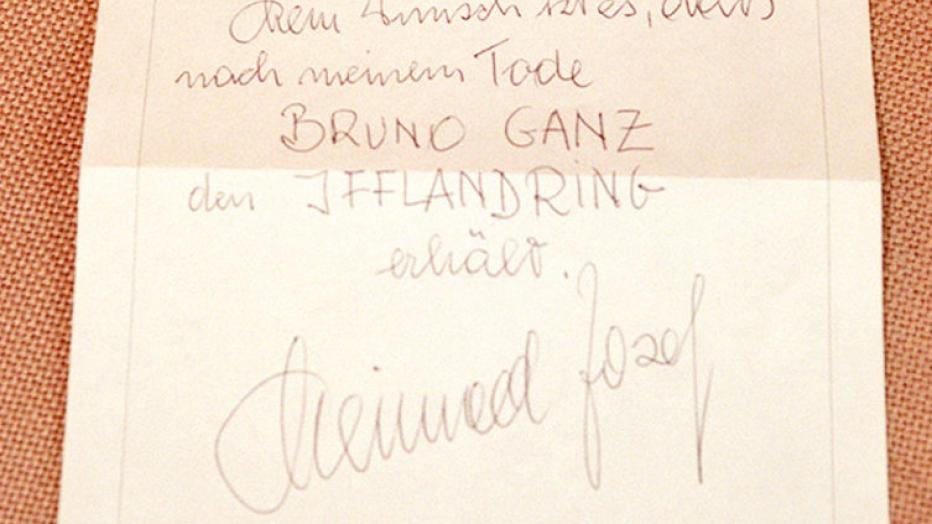 Mein Wunsch ist es, dass
nach meinem Tode
BRUNO GANZ
den IFFLANDRING
erhält.
Meinrad Josef